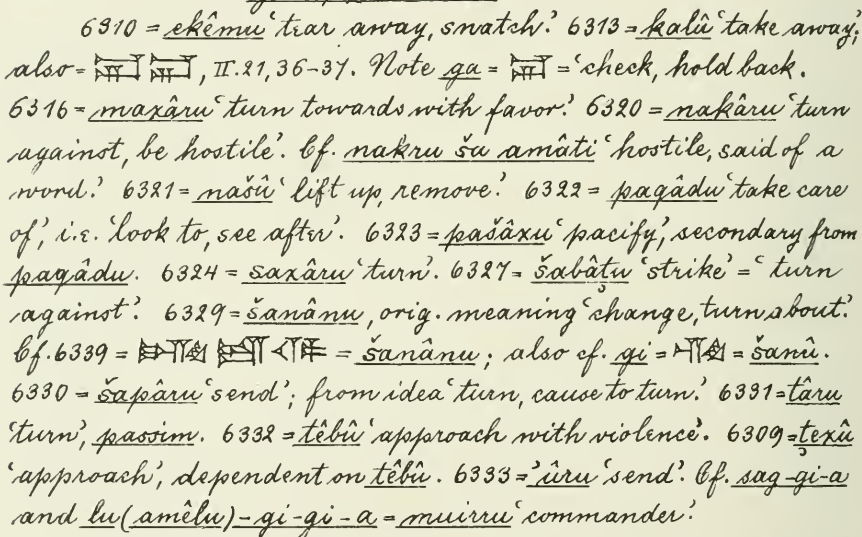 6310 = ekêmu 'tear away, snatch.' 6313 = kalû 'take away';
also = 𒂵 𒂵, II. 21, 36-37. Note ga = 𒂵 = 'check, hold back.
6316 = maxâru 'turn towards with favor.' 6320 = nakâru 'turn
against, be hostile'. Cf. nakru ša amâti 'hostile, said of a
word.' 6321 = našû 'lift up, remove.' 6322 = pagâdu 'take care
of', i.e. 'look to, see after'. 6323 = pašâxu 'pacify', secondary from
pagâdu. 6324 = saxâru 'turn'. 6327 = šabâṭu 'strike' = 'turn
against.' 6329 = šanânu, orig. meaning 'change, turn about.'
Cf. 6339 = = šanânu; also cf. gi = 𒄀 = šanû.
6330 = šapâru 'send'; from idea 'turn, cause to turn.' 6331 = târu
'turn', passim. 6332 = têbû 'approach with violence'. 6309 = ṭexû
'approach', dependent on têbû. 6333 = 'ûru 'send'. Cf. sag-gi-a
and lu(amêlu)-gi-gi-a = muirru 'commander.'